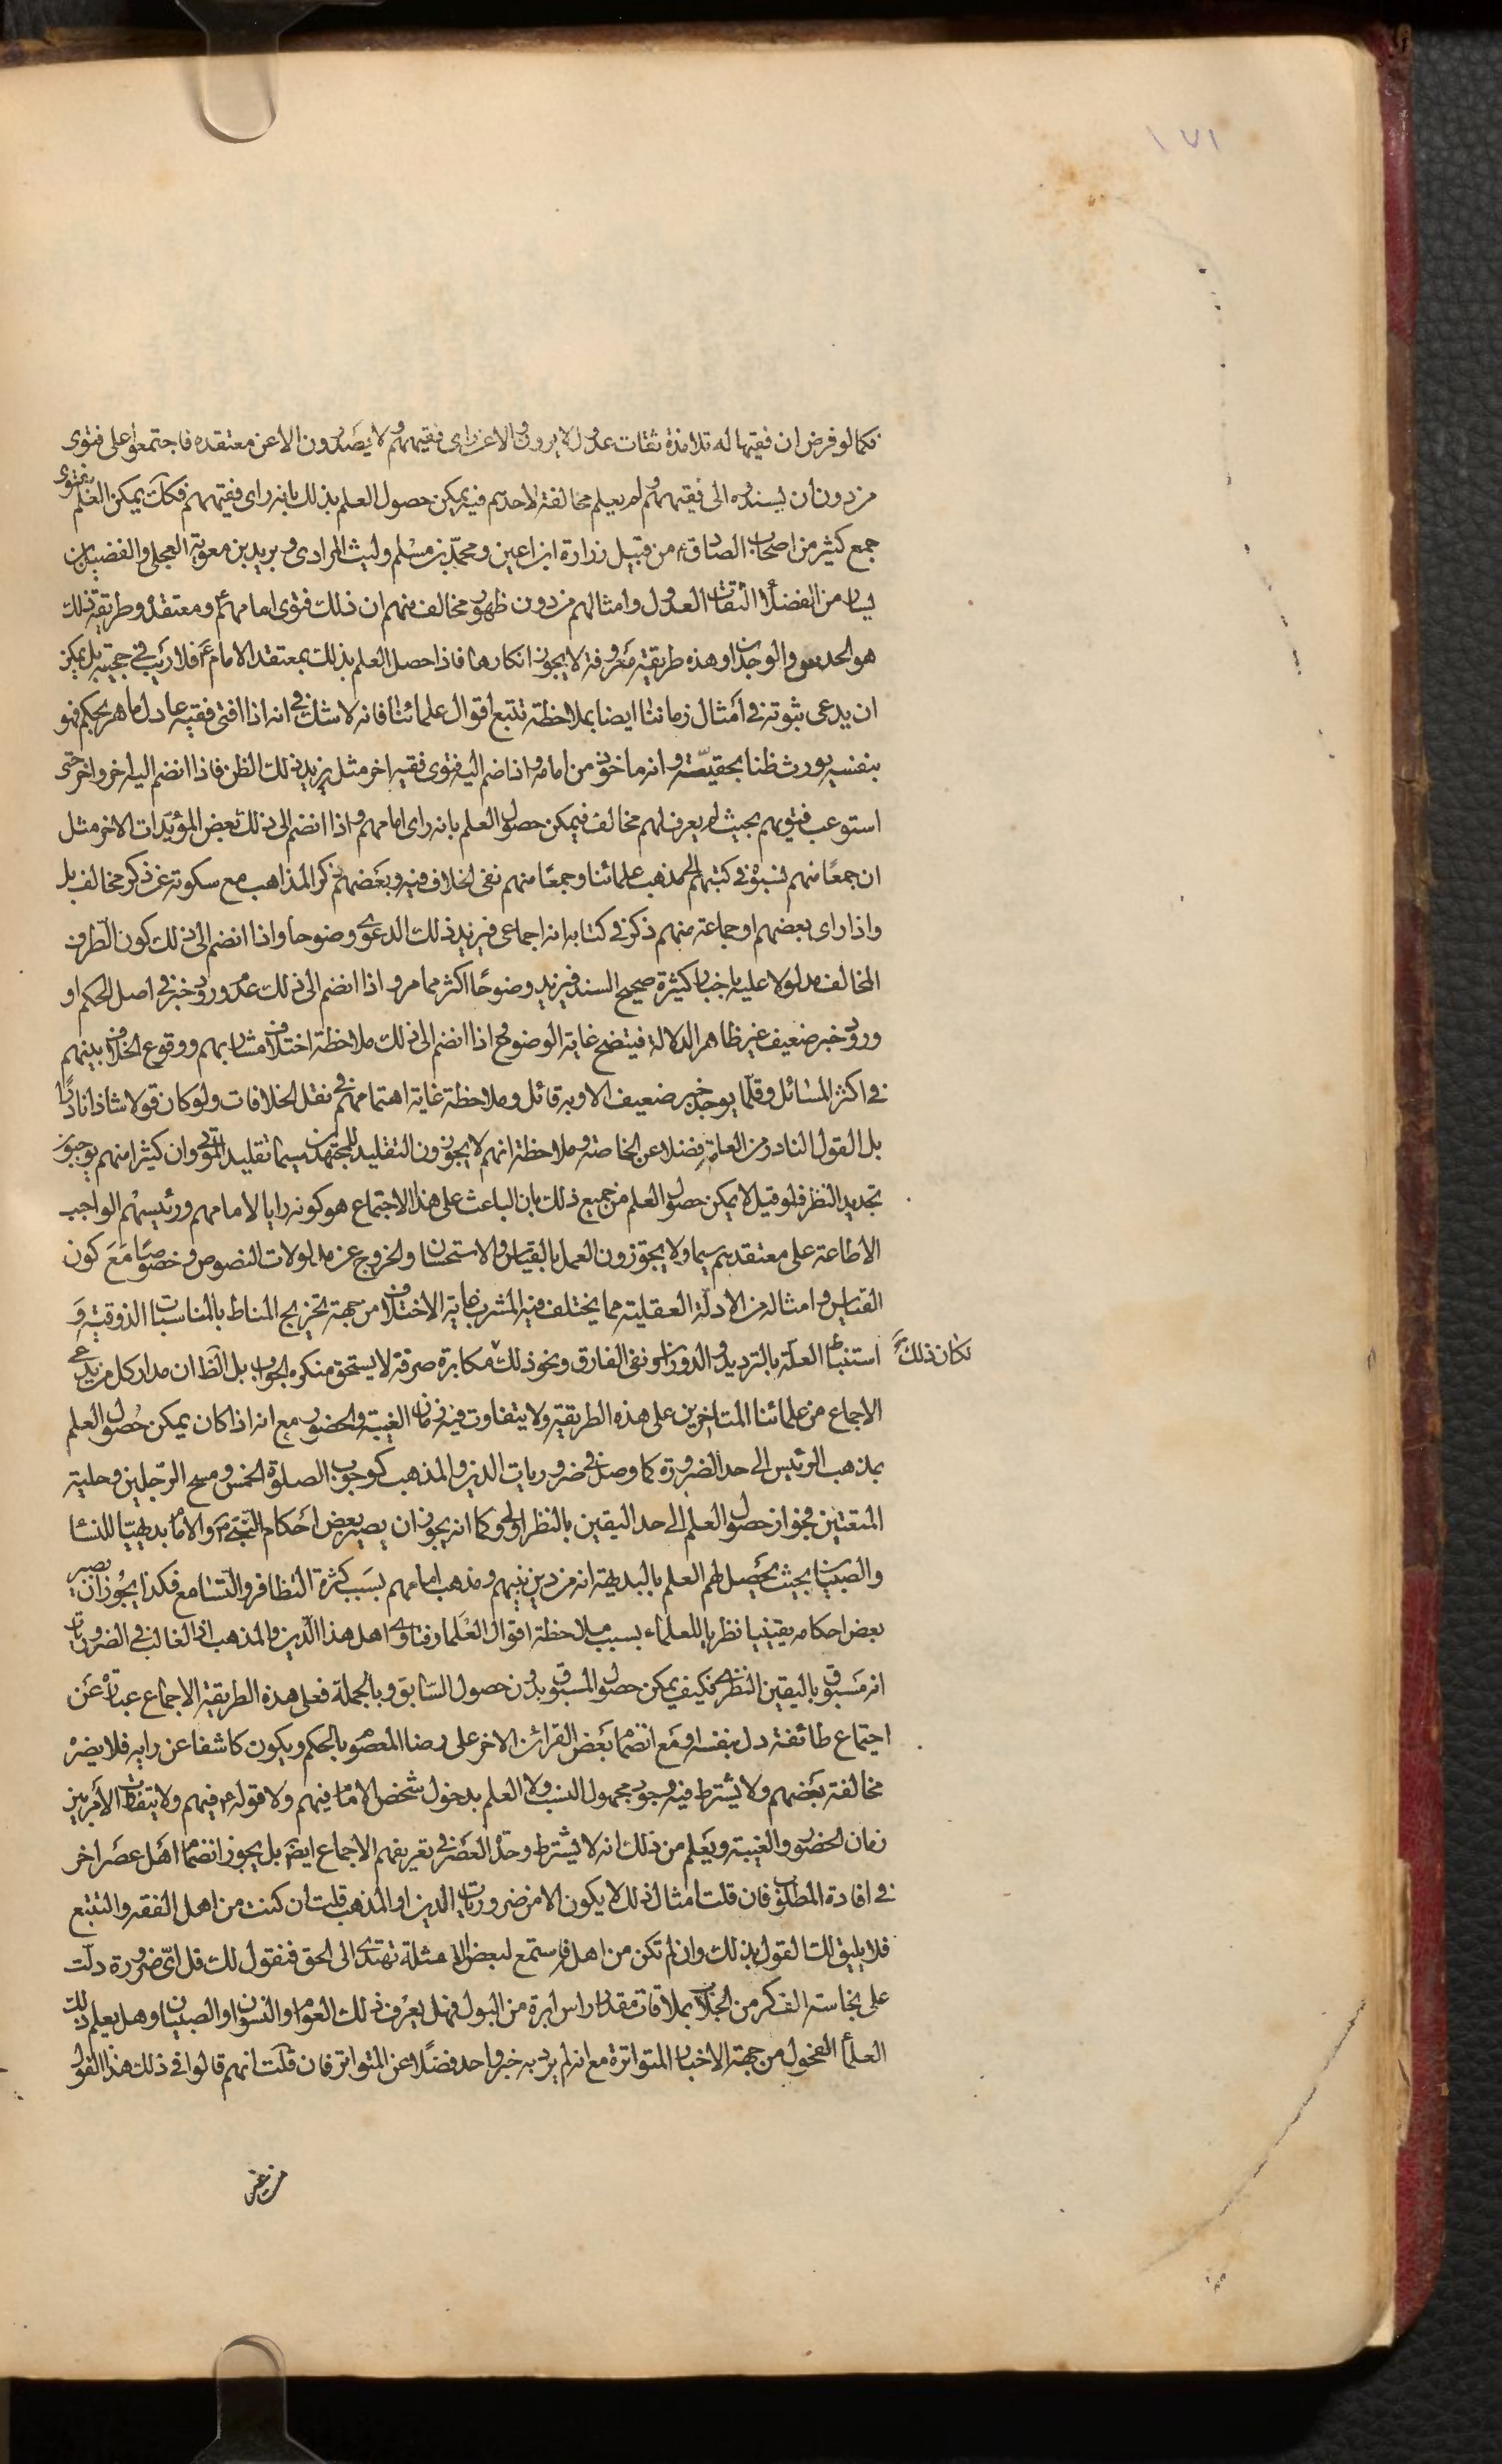 ١٧١
فكما لو فرض ان فقيها له تلامذة ثقات عدول لا يروون الا عن راى فقيههم و لا يصدرون الا عن معتقده فاجتمعوا على فتوى
من دون ان يسندوه الى فقيههم و لم يعلم مخالفة لاحدهم فيه يمكن حصول العلم بذلك بانه راى فقيههم فكك يمكن العلم بفتوى
جمع كثير من اصحاب الصادق ع من قبيل زرارة ابن اعين و محمد بن مسلم و ليث المرادى و بريد بن معوية العجلى و الفضيل بن
يسار من الفضلاء الثقات العدول و امثالهم من دون ظهور مخالف منهم ان ذلك فتوى امامهم ع و معتقده و طريقة ذلك
هو الحدس و الوجدان و هذه طريقة معروفة لا يجوز انكارها فاذا حصل العلم بذلك بمعتقد الامام ع فلا ريب فى حجيته بل يمكن
ان يدعى ثبوته فى امثال زماننا ايضا بملاحظة تتبع اقوال علمائنا فانه لا شك فى انه اذا افتى فقيه عادل ماهر بحكم فهو
بنفسه يورث ظنا بحقيته و انه ماخوذ من امامه و اذا ضم اليه فتوى فقيه اخر مثل يزيد ذلك الظن فاذا انضم اليه اخر و اخر حتى
استوعب فتويهم بحيث لم يعرف لهم مخالف فيمكن حصول العلم بانه راى امامهم و اذا انضم الى ذلك بعض المؤيدات الاخر مثل
ان جمعًا منهم نسبوه فى كتبهم الى مذهب علمائنا و جمعًا منهم نفى الخلاف فيه و بعضهم ذكر المذاهب مع سكوته عن ذكر مخالف بل
و اذا راى بعضهم او جماعة منهم ذكر فى كتابه انه اجماعى فيزيد ذلك الدعوى وضوحا و اذا انضم الى ذلك كون الطرف
المخالف مدلولا عليه باخبار كثيرة صحيح السند فيزيد وضوحًا اكثر مما مر و اذا انضم الى ذلك عدم ورود خبر فى اصل الحكم او
ورود خبر ضعيف غير ظاهر الدلالة فيتضح غاية الوضوح و اذا انضم الى ذلك ملاحظة اختلاف مشاربهم و وقوع الخلاف بينهم
فى اكثر المسائل و قلّما يوجد خبر ضعيف الا و به قائل و ملاحظة غاية اهتمامهم فى نقل الخلافات و لو كان قولا شاذا نادرًا
بل القول النادر من العامة فضلا عن الخاصة و ملاحظة انهم لا يجوزون التقليد للمجتهدين سيما تقليد الموتى و ان كثيرا منهم يوجبون
تجديد النظر فلو قيل لا يمكن حصول العلم من جميع ذلك بان الباعث على هذا الاجتماع هو كونه رايا لامامهم و رئيسهم الواجب
الاطاعة على معتقدهم سيما و لا يجوزون العمل بالقياس و الاستحسان و الخروج عن مدلولات النصوص و خصوصًا مع كون
القياس و امثاله من الادلة العقلية مما يختلف فيه المشرب غاية الاختلاف من جهة تخريج المناط بالمناسبات الذوقية و
استنباط العلّة بالترديد و الدوران و نفى الفارق و نحو ذلك مكابرة صرفة لا يستحق منكره الجواب بل الظ ان مدار كل من يدعى
لكان ذلك
الاجماع من علمائنا المتاخرين على هذه الطريقة و لا يتفاوت فيه زمان الغيبة و الحضور مع انه اذا كان يمكن حصول العلم
بمذهب الرئيس الى حد الضرورة كما وصل فى ضروريات الدين و المذهب كوجوب الصلوة الخمس و مسح الرجلين و حلية
المتعتين فجواز حصول العلم الى حد اليقين بالنظر اولى و كما انه يجوز ان يصير بعض احكام النبى ص و الامام بديهيا للنساء
و الصبيان بحيث يحصل لهم العلم بالبديهة انه من دين نبيهم و مذهب امامهم بسبب كثرة التظافر و التسامع فكذا يجوز ان يصير
بعض احكامه يقينيا نظريا للعلماء بسبب ملاحظة اقوال العلماء و فتاوى اهل هذا الدين و المذهب اذ الغالب فى الضروريات
انه مسبوق باليقين النظرى فكيف يمكن حصول المسبوق بدون حصول السابق و بالجملة فعلى هذه الطريقة الاجماع عبارة عن
اجتماع طائفة دل بنفسه او مع انضمام بعض القرائن الاخر على رضا المعصوم بالحكم و يكون كاشفا عن رايه فلا يضره
مخالفة بعضهم و لا يشترط فيه وجود مجهول النسب و لا العلم بدخول شخص الامام فيهم و لا قوله ع فيهم و لا يتفاوت الامر بين
زمان الحضور و الغيبة و يعلم من ذلك انه لا يشترط وحدة العصر فى تعريفهم الاجماع ايض بل يجوز انضمام اهل عصر اخر
فى افادة المطلوب فان قلت امثال ذلك لا يكون الا من ضروريات الدين او المذهب قلت ان كنت من اهل الفقه و التتبع
فلا يليق لك القول بذلك و ان لم تكن من اهله فاستمع لبعض الامثلة تهتدى الى الحق فنقول لك قل اىّ ضرورة دلّت
على نجاسة الف كر من الجلاب بملاقات مقدار راس ابرة من البول فهل يعرف ذلك العوام و النسوان و الصبيان و هل يعلم ذلك
العلماء الفحول من جهة الاخبار المتواترة مع انه لم يرد به خبر واحد فضلًا عن المتواتر فان قلت انهم قالوا فى ذلك هذا القول